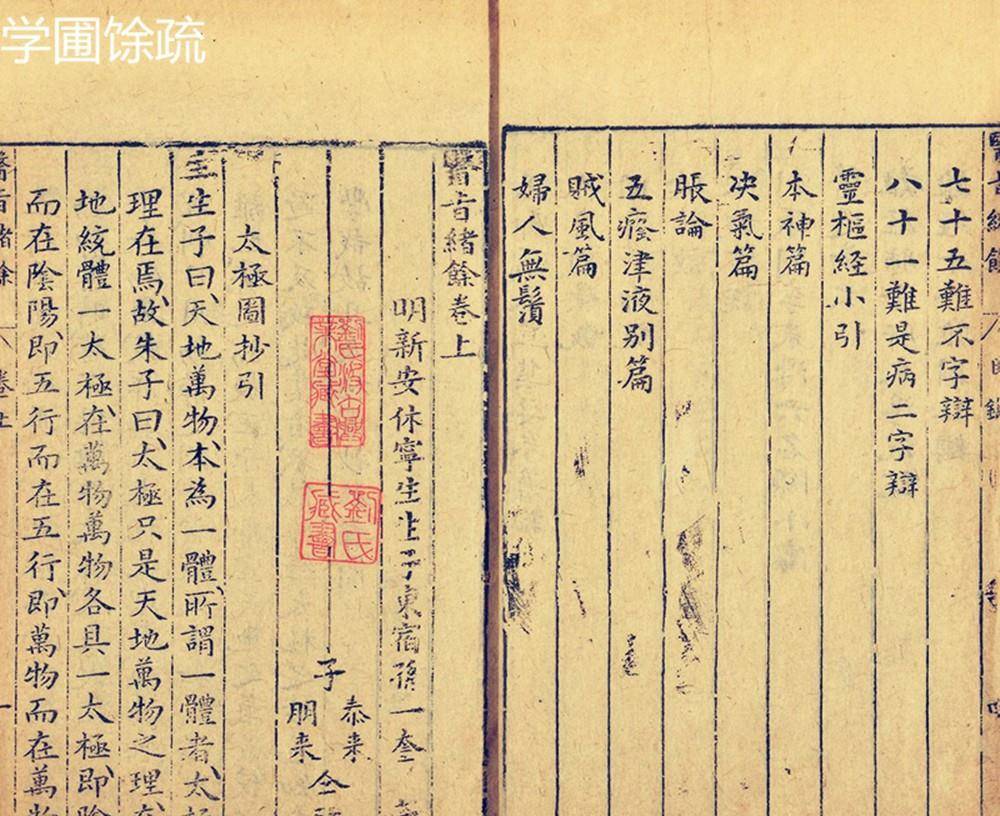 学圃馀疏
七十五難不字辯
八十一難是病二字辯
靈樞経小引
本神篇
决氣篇
脹論
五癃津液别篇
賊風篇
婦人無鬚
醫旨緒餘卷上
明新安休寧生生子東宿孫一奎
子
泰来
朋来
仝
劉氏
臧書
太極圖抄引
生生子曰天地萬物本為一體所謂一體者太極
理在焉故朱子曰太極只是天地萬物之理在
地統體一太極在萬物萬物各具一太極即陰
而在陰陽即五行而在五行即萬物而在萬物